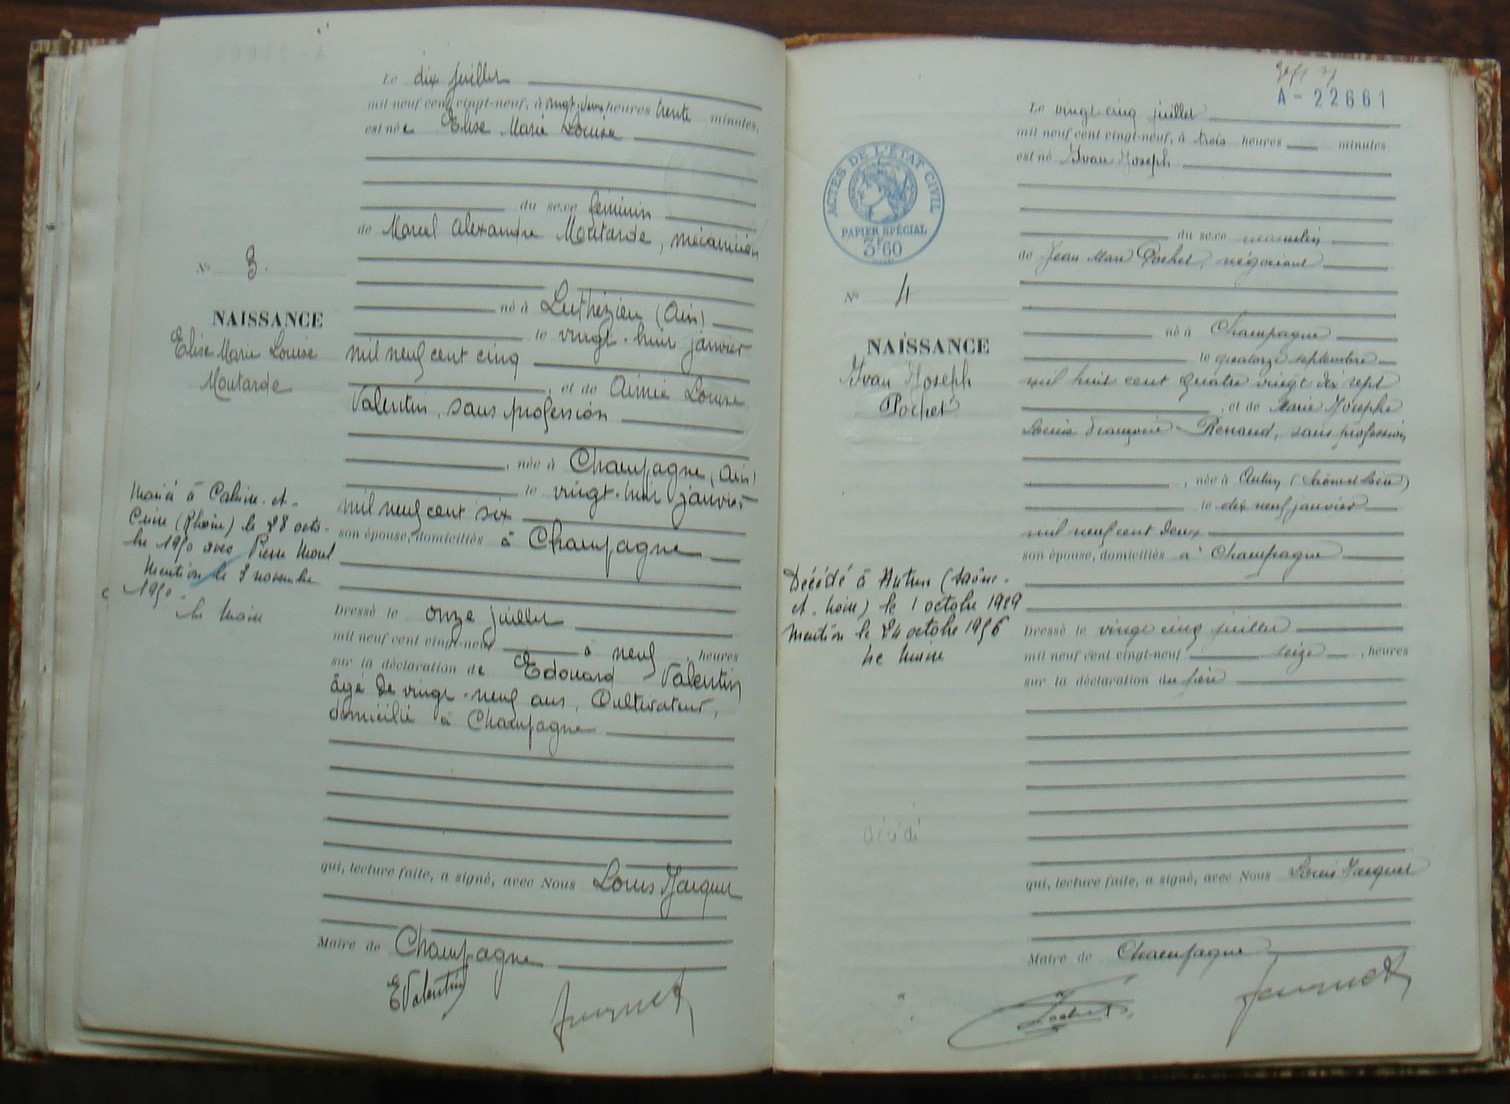 Le dix juillet
mil neuf cent vingt-neuf, à vingt-deux heures trente minutes,
est née Elise Marie Louise
du sexe féminin
de Marcel Alexandre Moutarde, mécanicien
N° 3.
né à Luthézieu (Ain)
NAISSANCE
le vingt-huit janvier
Elise Marie Louise
mil neuf cent cinq
Moutarde
, et de Aimée Louise
Valentin, sans profession
, née à Champagne (Ain)
le vingt-huit janvier
mil neuf cent six
son épouse, domiciliés à Champagne
Marié à Caluire-et-
Cuire (Rhône) le 28 octo-
bre 1950 avec Pierre
Mention le 3 novembre
1950
Le Maire
Dressé le onze juillet
mil neuf cent vingt-neuf à neuf heures
sur la déclaration de Edouard Valentin
âgé de vingt-neuf ans, Cultivateur,
domicilié à Champagne
qui, lecture faite, a signé, avec Nous Louis Jacquet
Maire de Champagne
EValentin
A-22661
Le vingt-cinq juillet
mil neuf cent vingt-neuf, à trois heures minutes
est né Yvan Joseph
ACTES DE L'ÉTAT CIVIL
PAPIER SPÉCIAL
3F60
du sexe masculin
de Jean Marc Pochet, négociant
N° 4
né à Champagne
NAISSANCE
le quatorze septembre
Yvan Joseph
mil huit cent quatre vingt dix sept
Pochet
, et de Marie Josephe
Louise Françoise Renaud, sans profession
, née à Autun (Saône et Loire)
le dix neuf janvier
mil neuf cent deux
son épouse, domiciliés à Champagne
Décédé à Autun (Saône-
et-Loire) le 1 octobre 1929
Mention le 24 octobre 1956
Le Maire
Dressé le vingt cinq juillet
mil neuf cent vingt-neuf seize, heures
sur la déclaration du père
décédé
qui, lecture faite, a signé, avec Nous Louis Jacquet
Maire de Champagne
Pochet